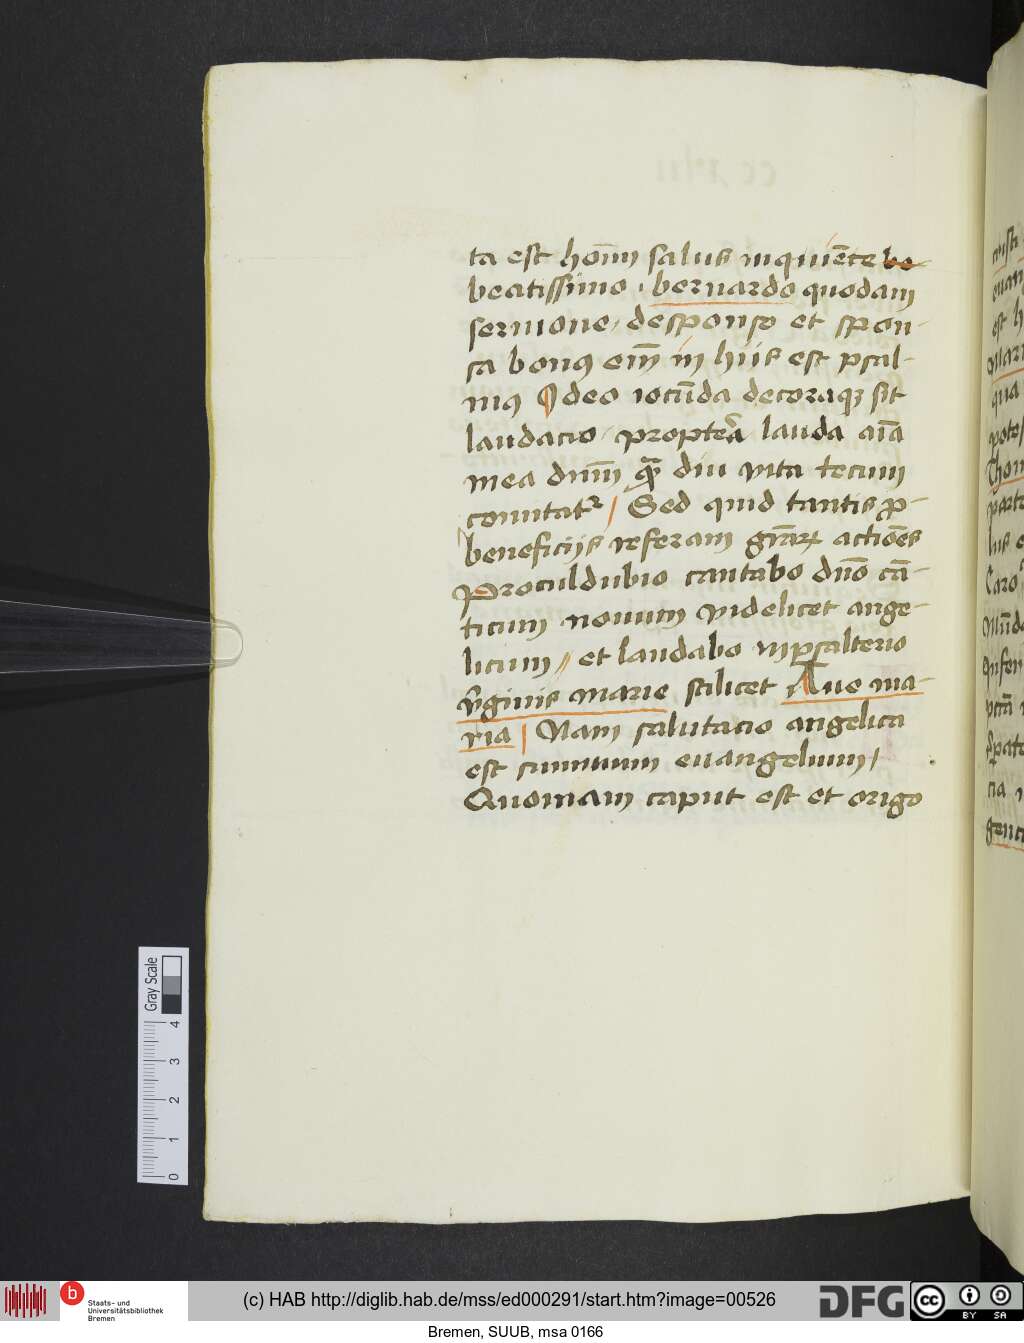 ta est hom̄ salus inquiēte be
beatissimo · bernardo quodam
sermone / de sponso et spon-
sa bonꝰ em̄ in hiis est psal-
mꝰ Qd deo iocūda decoraqꝫ sit
laudacio / propterā lauda aīa
mea dnm̄ qꝛ̄ diu vita tecum
comitatr / Sed quid tantis ꝓ-
beneficijs referam gr̄arꝝ actiōes
Proculdubio cantabo dn̄o cā-
ticum nouum videlicet ange-
licum // et laudabo in psalterio
v̄ginis marie scilicet Aue ma-
ria | Nam salutacio angelica
est summum euangelium /
Quoniam caput est et origo
Gray Scale
0 1 2 3 4
b
Staats- und
Universitätsbibliothek
Bremen
(c) HAB http://diglib.hab.de/mss/ed000291/start.htm?image=00526
DFG
cc
BY SA
Bremen, SUUB, msa 0166